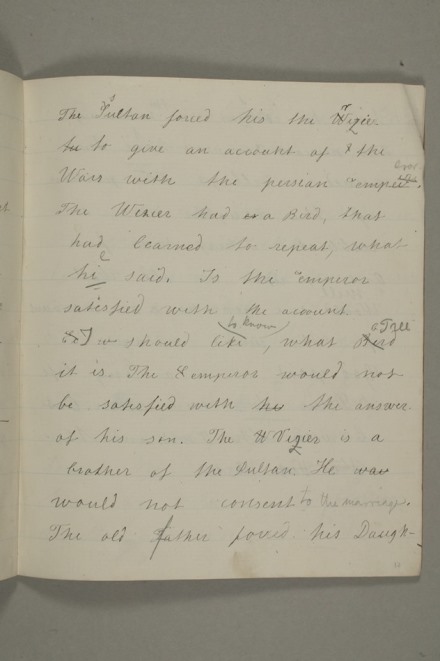 The Sultan forced his the Vizier
to to give an account of & the
Wars with the persian emperor.
The Wezier had a Bird, that
had learned to repeat, what
he said. Is the emperor
satisfied with the account
I should like to know, what a Tree
it is. The emperor would not
be satisfied with the answer
of his son. The Vizier is a
brother of the Sultan. He was
would not consent to the marriage.
The old father forced his Daugh-